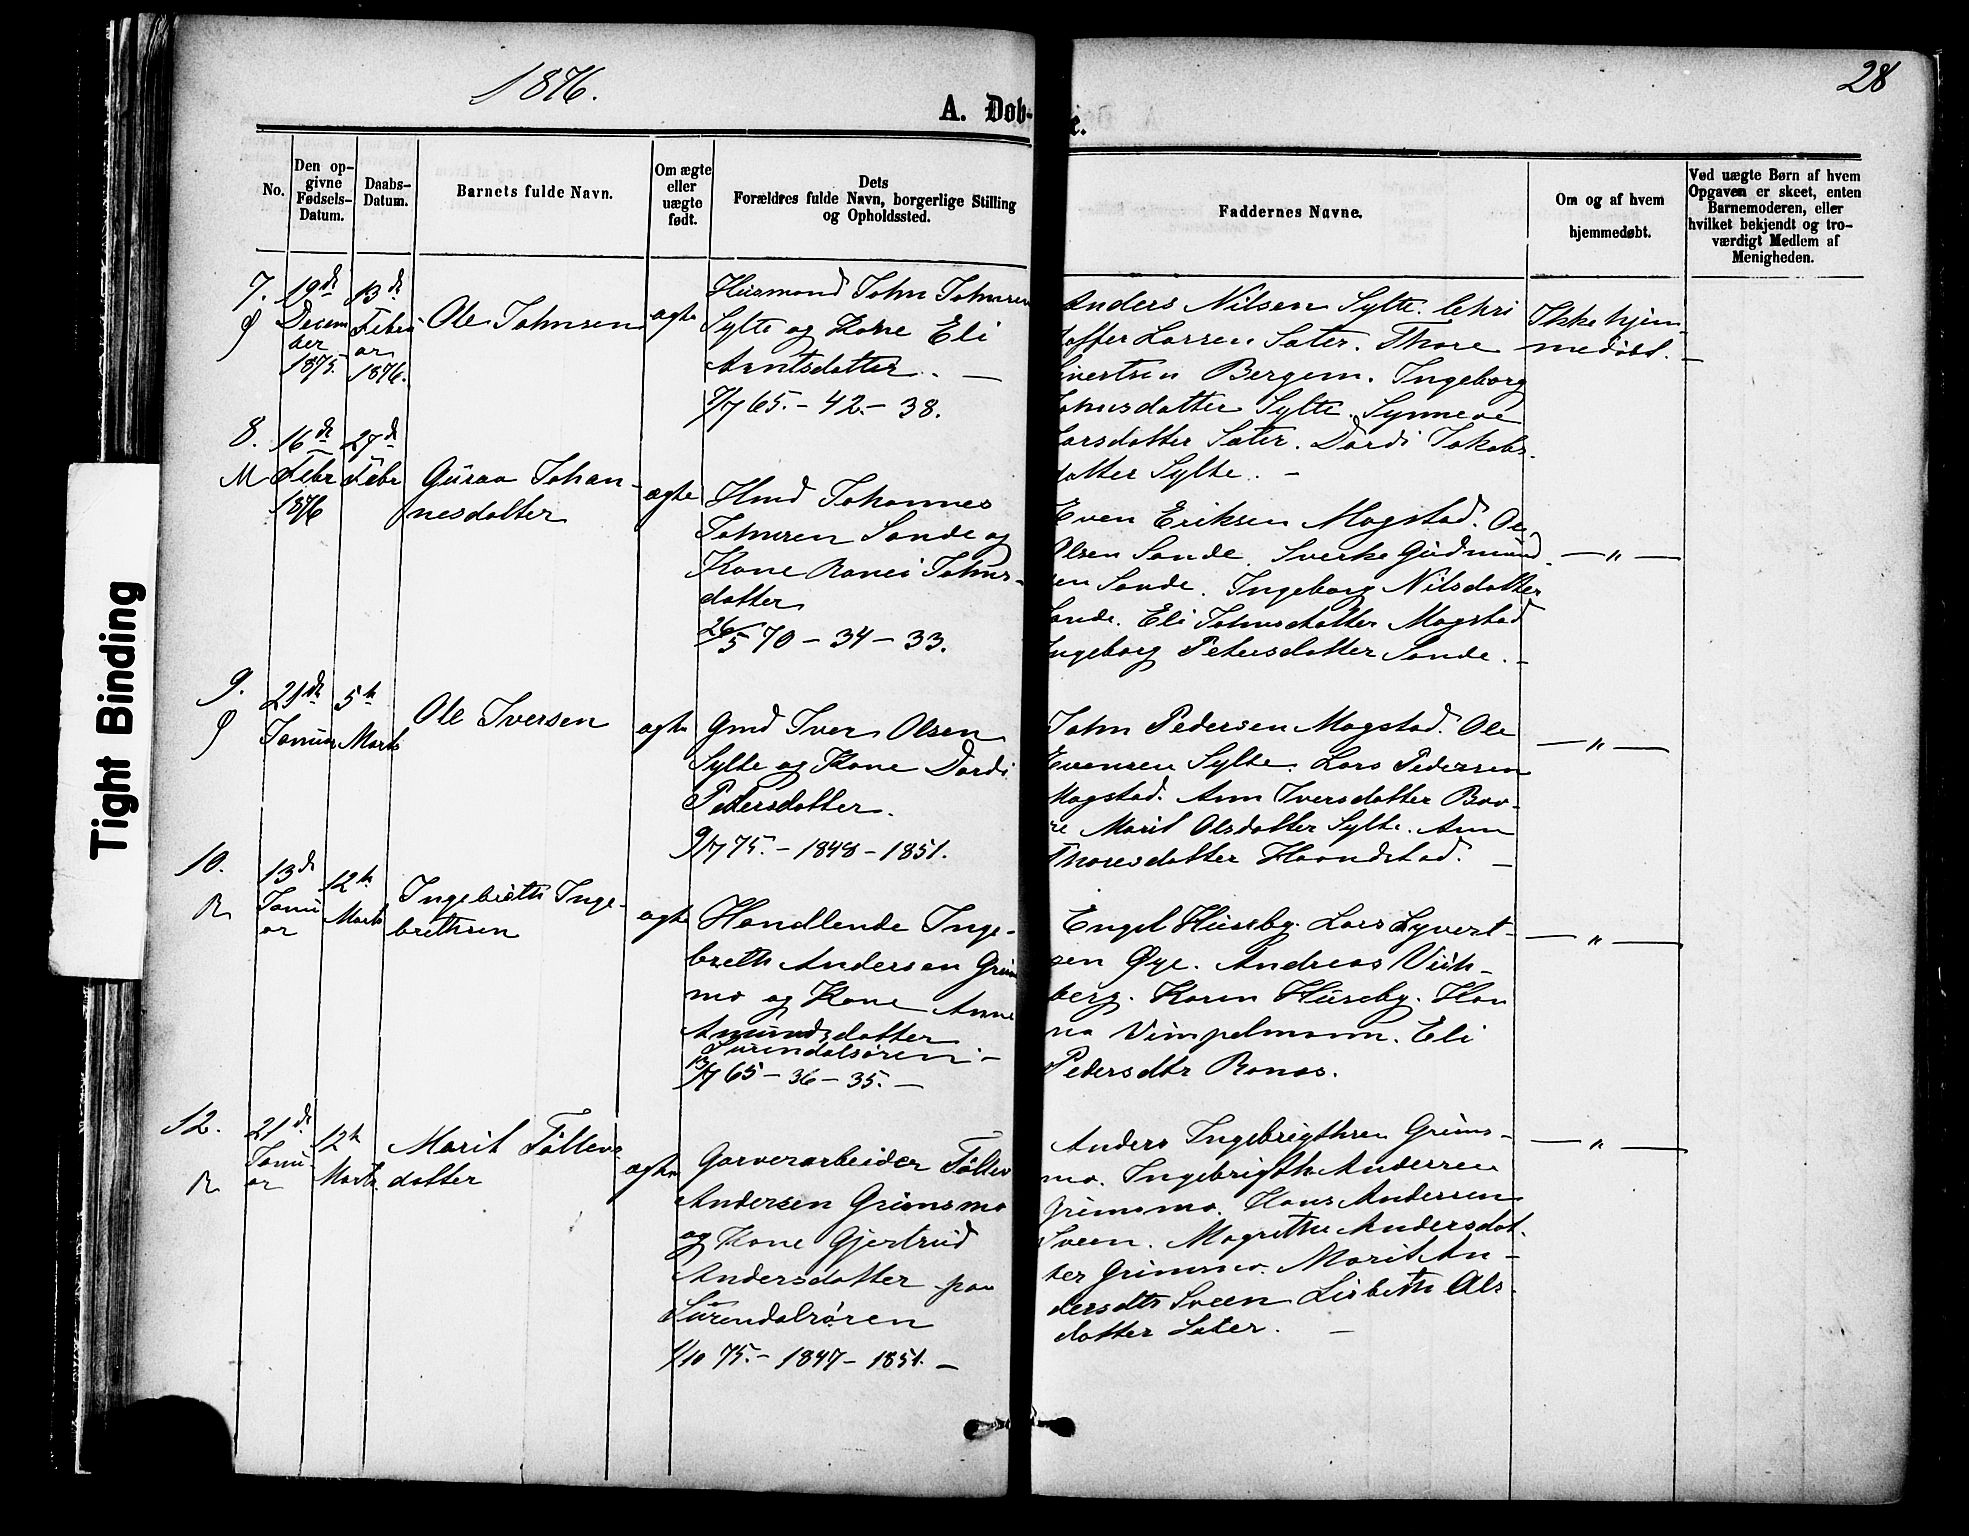 1876.
28
A. Døb-
e.
No.
Den op-
givne
Fødsels-
Datum.
Daabs-
Datum.
Barnets fulde Navn.
Om ægte
eller
uægte
født.
Dets
Forældres fulde Navn, borgerlige Stilling
og Opholdssted.
Faddernes Navne.
Om og af hvem
hjemmedøbt.
Ved uægte Børn af hvem
Opgaven er skeet, enten
Barnemoderen, eller
hvilket bekjendt og tro-
værdigt Medlem af
Menigheden.
7.
19de
Decem
ber
1875.
13de
Febru
ar
1876.
Ole Johnsen
ægte
Husmand John Johnsen
Sylte og Kone Eli
Arntsdatter. —
7/7 65. – 42. – 38.
Anders Nilsen Sylte. Chri
stoffer Larsen Sæter. Thore
Sivertsen Bergem. Ingeborg
Johnsdatter Sylte. Synneve
Larsdatter Sæter. Dordi Jakobs-
datter Sylte. –
Ikke hjem-
medøbt. –
8.
M
16de
Febr
1876
27de
Febr
Guraa Johan-
nesdatter
ægte
Hmd Johannes
Johnsen Sande og
Kone Ranei Johns-
datter
26/5 70 – 34 – 33.
Even Eriksen Mogstad. Ole
Olsen Sande. Sverke Gudmund
sen Sande. Ingeborg Nilsdatter
Sande. Eli Johnsdatter Mogstad
Ingeborg Petersdatter Sande. –
— " —
9.
21de
Januar
5te
Marts
Ole Iversen
ægte
Gmd Iver Olsen
Sylte og Kone Dordi
Petersdatter.
9/7 75. – 1848 – 1851.
John Pedersen Mogstad. Ole
Evensen Sylte. Lars Pedersen
Mogstad. Ann Iversdatter Bøv-
re Marit Olsdatter Sylte. Ann
Thoresdatter Haandstad. –
— " —
10.
R
13de
Janu
ar
12te
Marts
Ingebreth Inge-
brethsen
ægte
Handlende Inge-
breth Andersen Grims
mo og Kone Anne
Amundsdatter
Surendalsøren –
13/7 65 – 36 – 35. –
Engel Huseby. Lars Syvert-
sen Øye. Andreas
berg. Karen Huseby. Han
na Vimpelmann. Eli
Pedersdtr Rønes.
— " —
12.
R
21de
Janu-
ar
12te
Marts.
Marit Tøllevs
datter
ægte
Garverarbeider Tøllev
Andersen Grimsmo
og Kone Gjertrud
Andersdatter paa
Surendalsøren
1/10 75. – 1847 – 1851. –
Anders Ingebrigthsen Grims-
mo. Ingebrigth Andersen
Grimsmo. Hans Andersen
Sveen. Magrethe Andersdat-
ter Grimsmo. Marit An-
dersdtr Sveen Lisbeth Ols-
datter Sæter. –
— " —
Tight Binding